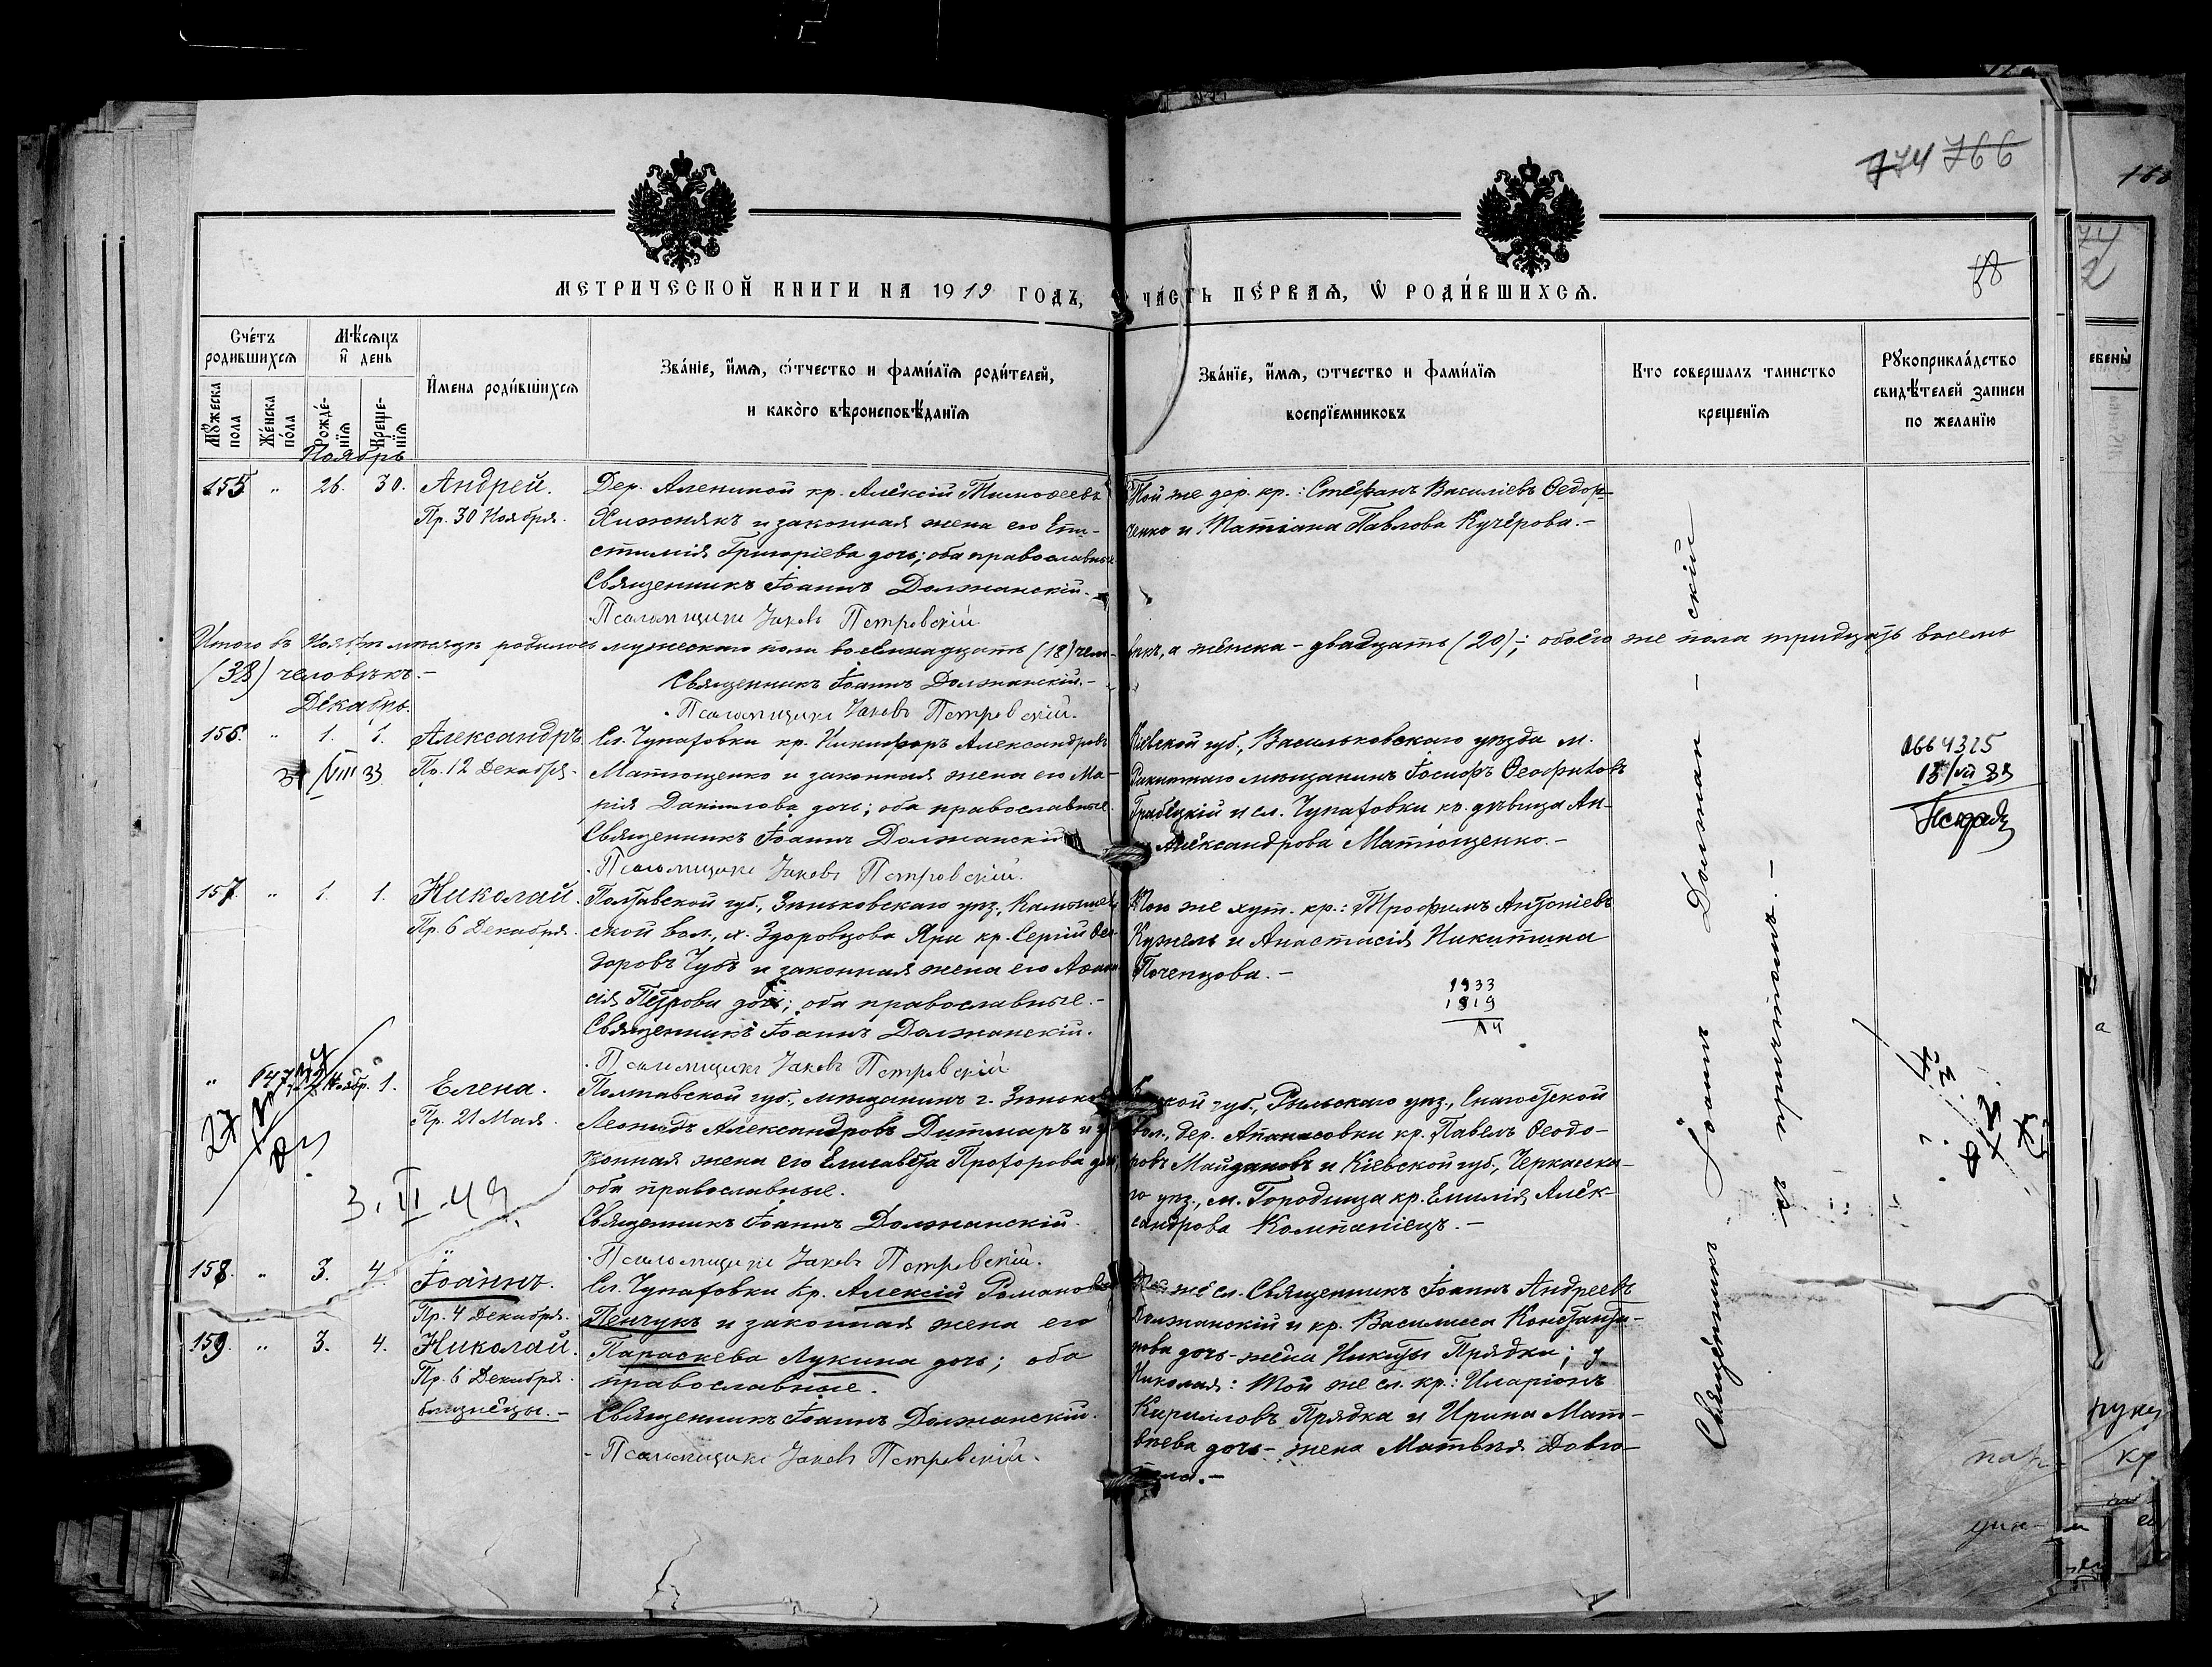 774 766
58
МЕТРИЧЕСКОЙ КНИГИ НА 1919 ГОДЪ, ЧАСТЬ ПЕРВАЯ, Ѡ РОДИВШИХСЯ.
Счетъ родившихся
Мужеска пола
Женска пола
Мѣсяцъ и день
Рождения
Крещенія
Имена родившихся
Званіе, имя, отчество и фамилія родителей,
и какого вѣроисповѣданія
Званіе, имя, отчество и фамилія
воспріемниковъ
Кто совершалъ таинство
крещенія
Рукоприкладство
свидѣтелей записи
по желанію
Ноябрь
155 " 26. 30. Андрей.
Пр. 30 Ноября.
Дер. Алениной кр. Алексій Тимоѳеевъ
Хижнякъ и законная жена его Епи-
стимія Григоріева дочь; оба православные
Священникъ Іоаннъ Должанскій.
Псаломщикъ Іаковъ Петровскій.
Той же дер. кр.: Стефанъ Василіевъ Ѳедор-
ченко и Татіана Павлова Кучерова.-
Итого въ Ноябрѣ мѣсяцѣ родилось мужескаго пола восемнадцать (18) чело-
вѣкъ, а женска - двадцать (20) -; обоего же пола тридцать восемь
(38) человѣкъ.-
Священникъ Іоаннъ Должанскій.-
Псаломщикъ Іаковъ Петровскій.
Декабрь.
156. " 1. 1. Александръ
VIII 33
Пр. 12 Декабря.
Сл. Чупаховки кр. Никифоръ Александровъ
Матющенко и законная жена его Ма-
рія Даніилова дочь; оба православные.
Священникъ Іоаннъ Должанскій
Псаломщикъ Іаковъ Петровскій.
Кіевской губ., Васильковскаго уѣзда м.
Ракитнаго мѣщанинъ Іосифъ Ѳеофиловъ
Грабецкій и сл. Чупаховки кр. дѣвица Ан-
Александрова Матющенко.-
0664325
157. " 1. 1. Николай.
Пр. 6 Декабря.
Полтавской губ., Зѣньковскаго уѣз., Камыше-
ской вол., х. Здоровцова Яра кр. Сергій Ѳео-
доровъ Чубъ и законная жена его
сія Петрова дочь; оба православные.-
Священникъ Іоаннъ Должанскій.
Псаломщикъ Іаковъ Петровскій
Того же хут. кр.: Трофимъ Антоніевъ
Кужель и Анастасія Никитина
Почепцова.-
1933
1919
14
" 147 Ноябр. 1. Елена.
Пр. 21 Мая.
3. II. 49
Полтавской губ., мѣщанинъ г. Зѣнькова
Леонидъ Александровъ Дитмаръ и за-
конная жена его Елисавета Прохорова дочь
оба православные.
Священникъ Іоаннъ Должанскій.
Псаломщикъ Іаковъ Петровскій.
Курской губ., Рыльскаго уѣз., Снагостской
вол., дер. Апанасовки кр. Павелъ Ѳеодо-
ровъ Майдановъ и Кіевской губ., Черкасска-
го уѣз., м. Городища кр. Емилія Алек-
сандрова Компаніецъ.-
158. " 3. 4. Іоаннъ.
Пр. 4 Декабря.
159. " 3. 4. Николай.
Пр. 6 Декабря.
близнецы.-
Сл. Чупаховки кр. Алексій Романовъ
Пенчукъ и законная жена его
Параскева Лукина дочь; оба
православные.
Священникъ Іоаннъ Должанскій.
Псаломщикъ Іаковъ Петровскій.
Той же сл. Священникъ Іоаннъ Андреевъ
Должанскій и кр. Василисса Константи-
нова дочь-жена Никиты Прядки; у
Николая: той же сл. кр.: Иларіонъ
Кирилловъ Прядка и Ирина Мат-
вѣева дочь-жена Матвѣя Довго-
Священникъ Іоаннъ Должан-скій
съ причтомъ.-